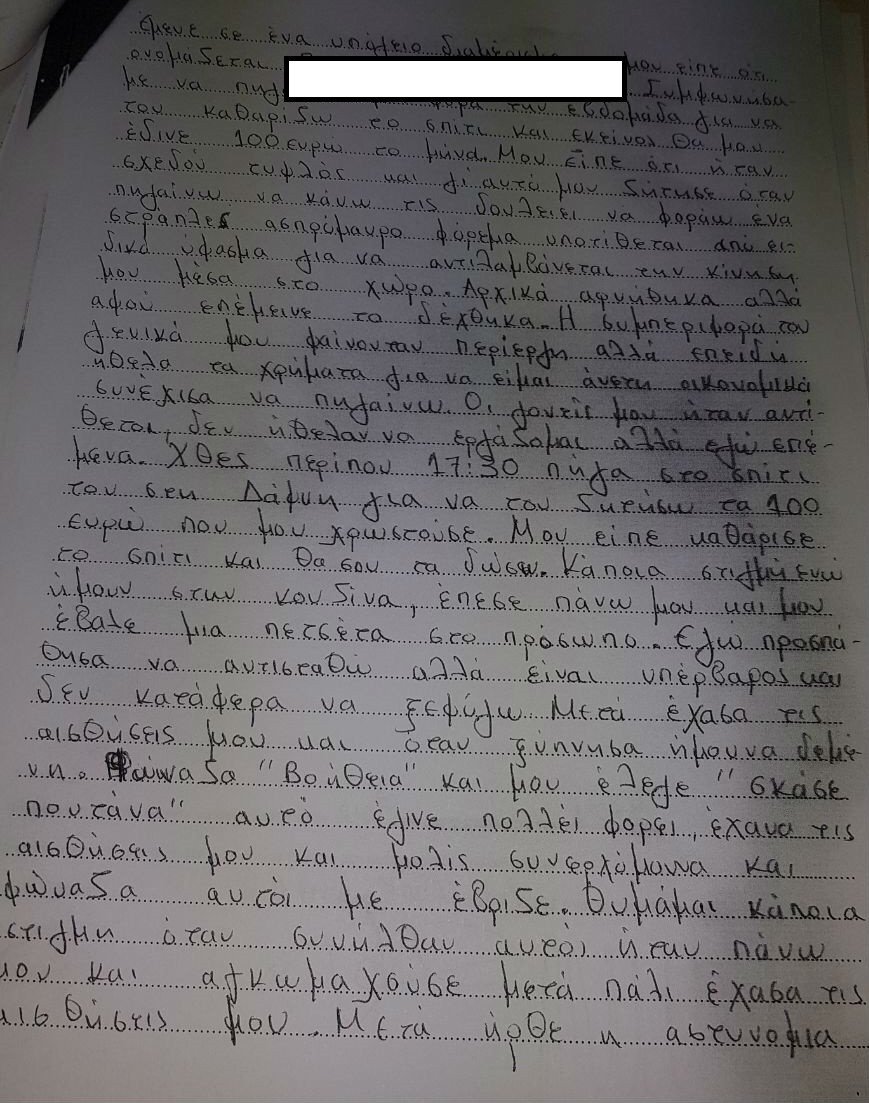 έμενε σε ένα υπόγειο διαμέρισμα μου είπε ότι
ονομάζεται Συμφωνήσα-
με να πηγ φορά την εβδομάδα για να
του καθαρίζω το σπίτι και εκείνος θα μου
έδινε 100 ευρώ το μήνα. Μου είπε ότι ήταν
σχεδόν τυφλός και γι αυτό μου ζήτησε όταν
πηγαίνω να κάνω τις δουλειες να φοράω ένα
στράπλες ασπρόμαυρο φόρεμα υποτίθεται από ει-
δικό ύφασμα για να αντιλαμβάνεται την κίνηση
μου μέσα στο χώρο. Αρχικά αρνήθηκα αλλά
αφού επέμεινε το δέχθηκα. Η συμπεριφορά του
γενικά μου φαίνονταν περίεργη αλλά επειδή
ήθελα τα χρήματα για να είμαι άνετη οικονομικά
συνέχισα να πηγαίνω. Οι γονείς μου ήταν αντί-
θετοι, δεν ήθελαν να εργάζομαι αλλά εγώ επέ-
μενα. Χθες περίπου 17:30 πήγα στο σπίτι
του στη Δάφνη για να του ζητήσω τα 100
ευρώ που μου χρωστούσε. Μου είπε καθάρισε
το σπίτι και θα σου τα δώσω. Κάποια στιγμή ενώ
ήμουν στην κουζίνα, έπεσε πάνω μου και μου
έβαλε μια πετσέτα στο πρόσωπο. Εγώ προσπά-
θησα να αντισταθώ αλλά είναι υπέρβαρος και
δεν κατάφερα να ξεφύγω Μετά έχασα τις
αισθήσεις μου και όταν ξύπνησα ήμουνα δεμέ-
νη. Φώναζα "Βοήθεια" και μου έλεγε "σκάσε
πουτανα" αυτό έγινε πολλές φορες, έχανα τις
αισθήσεις μου και μολίς συνερχόμουνα και
φώναζα αυτός με έβριζε. Θυμάμαι κάποια
στιγμη όταν συνήλθαν αυτός ήταν πάνω
μου και αγκωμαχούσε μετά πάλι έχασα τις
αισθήσεις μου. Μετά ήρθε η αστυνομια